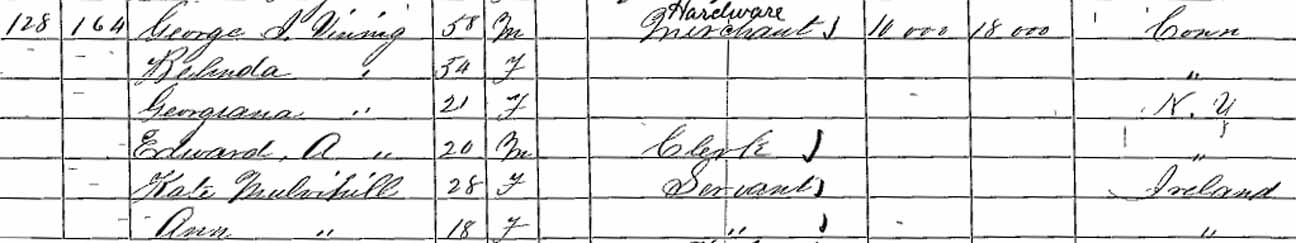 128 164 George I. Vining 58 M Hardware Merchant 10 000 18 000 Conn
Belinda " 54 F "
Georgiana " 21 F N. Y
Edward, A " 20 M Clerk "
Kate Mulvihill 28 F Servant Ireland
Ann " 18 F " "